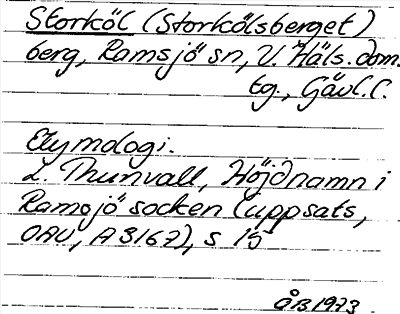 Storköl (Storkölsberget)
berg, Ramsjö sn, V. Häls. dom.
tg., Gävl. l.
Etymologi.
L. Thunvall, Höjdnamn i
Ramsjö socken (uppsats,
OAU, A 3167), s 15
ÅB 1973